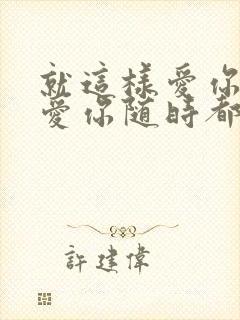 就這樣愛你
愛你隨時都
許建偉